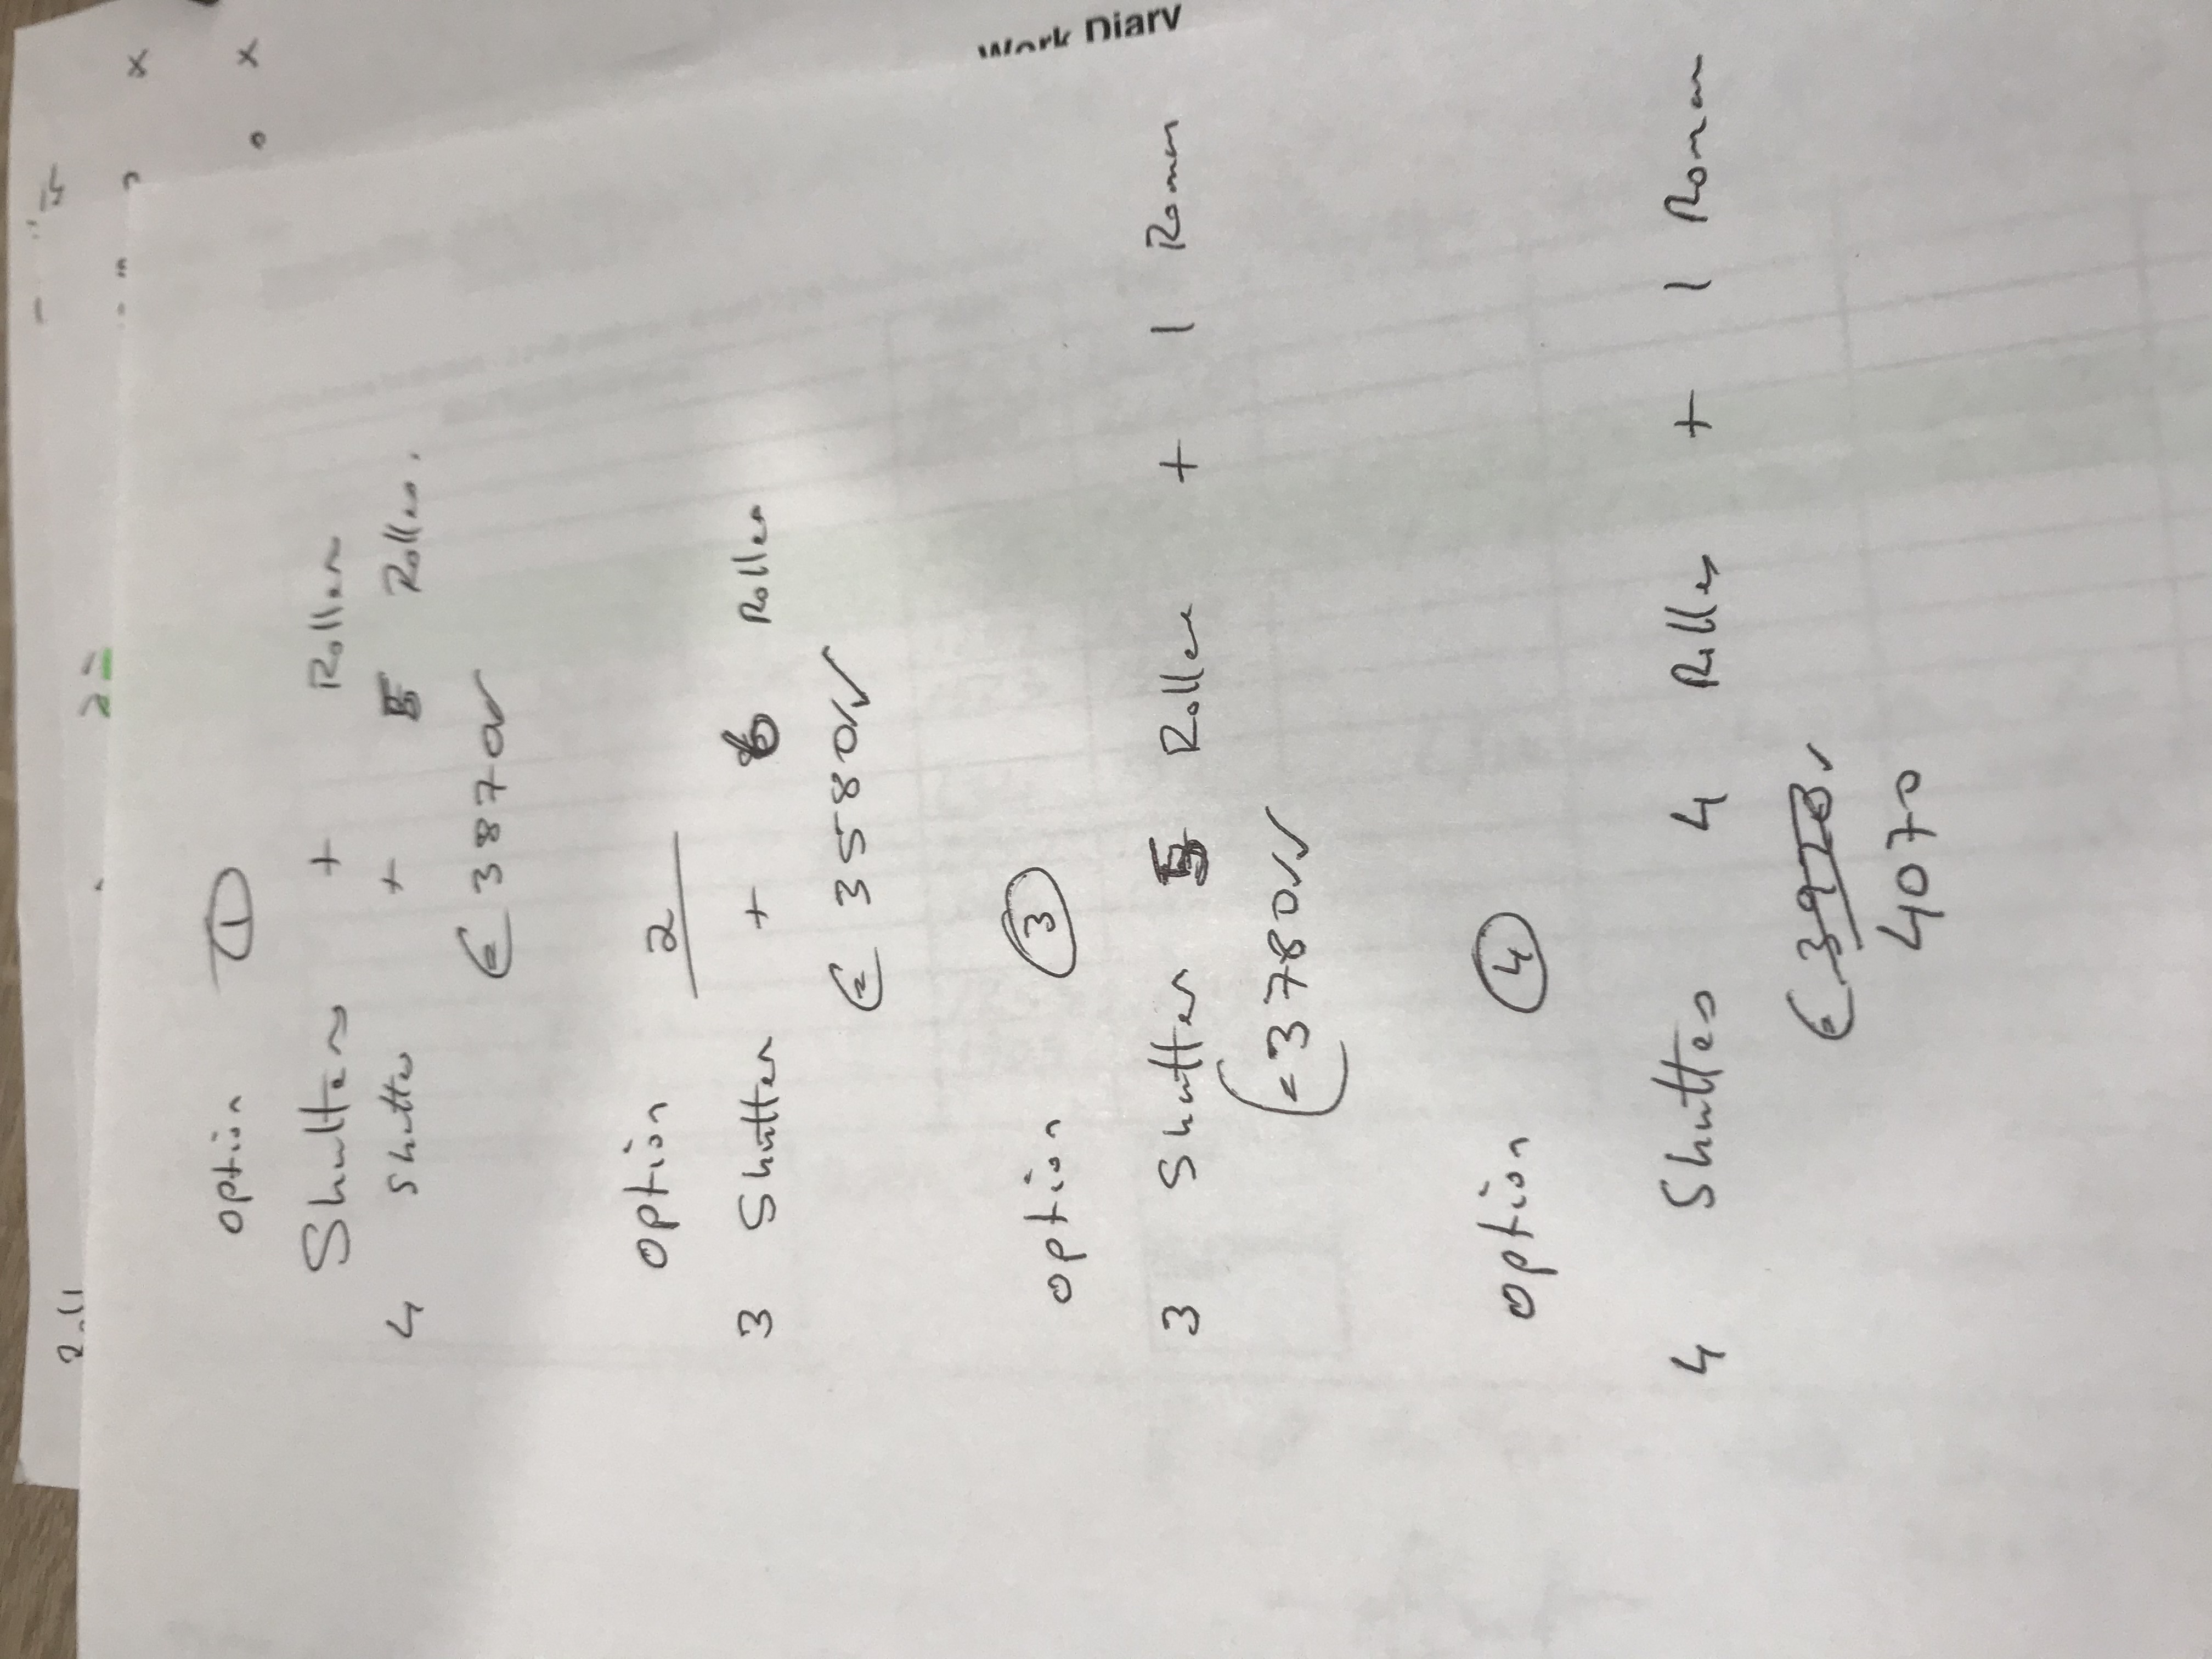 Work Diary
Option 1
Shutters + Roller
4 Shutter + 5 Roller.
€ 3870
Option 2
3 Shutter + 6 Roller
€ 3580
Option 3
3 Shutter 5 Roller + 1 Roman
€ 3780
Option 4
4 Shutters 4 Roller + 1 Roman
€
4070